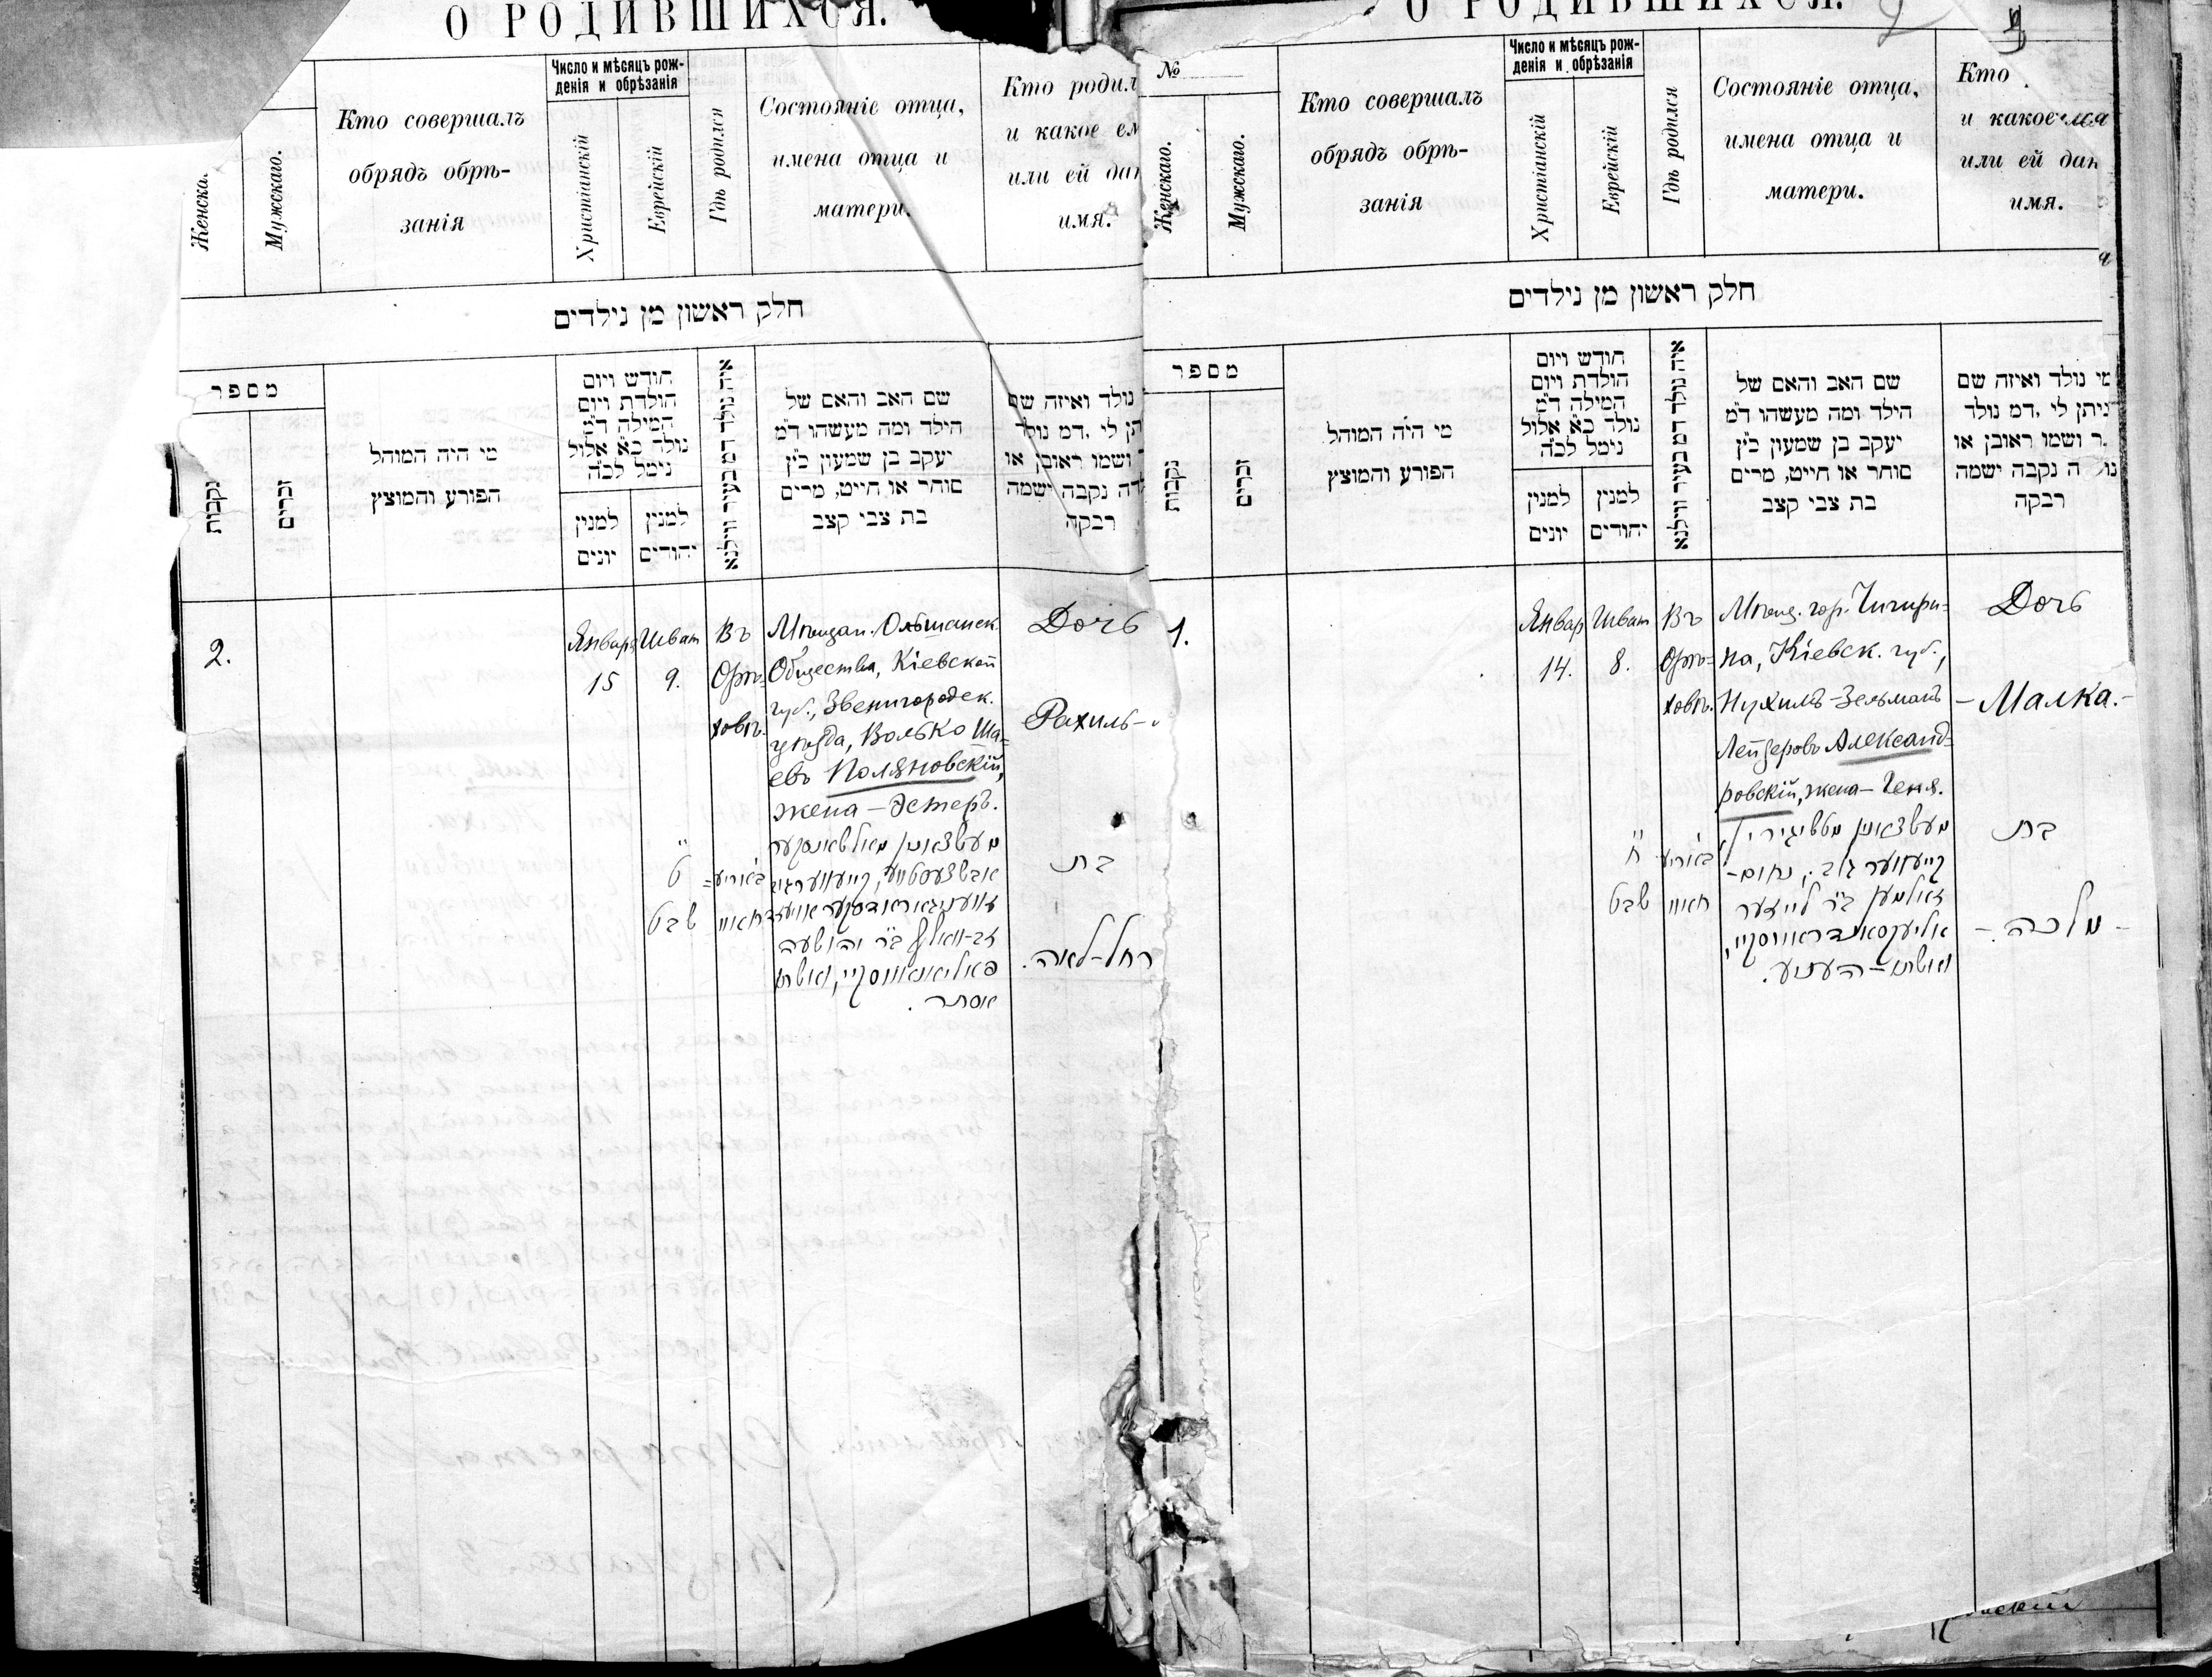 О РОДИВШИХСЯ.
Женска
Мужскаго.
Кто совершалъ
обрядъ обрѣ-
занія
Число и мѣсяцъ рож-
денія и обрѣзанія
Христіанскій
Еврейскій
Гдѣ родился
Состояніе отца,
имена отца и
матери.
Кто родил
и какое ем
или ей дан
имя.
חלק ראשון מן נילדים
מספר
נקבות
זכרים
מי היה המוהל
הפורע והמוצץ
חודש ויום
הולדת ויום
המילה ד״מ
נולד כ״א אלול
נימל לכ״ה
למנין
יונים
למנין
יהודים
איה נולד דמ בעיר ווילנא
שם האב והאם של
הילד ומה מעשהו ד״מ
יעקב בן שמעון כ״ץ
סוחר או חייט, מרים
בת צבי קצב
נולד ואיזה שם
תן לי ,דמ נולד
ושמו ראובן או
דה נקבה ישמה
רבקה
2.
Январь
15
Шват
9.
Въ
Орѣ-
ховѣ.
Мѣщан. Ольшанск.
Общества, Кіевской
губ., Звенигородск.
уѣзда, Волько Ша-
евъ Поляновскій,
жена – Эстеръ.
Дочь
Рахиль-
ט
שבט
באריע=
חאוו
מעשצאנין מאלשאנסקער
אבשצעסטווע, קייעווער גוב
זווניגאראדסקער אויעזד
זב-וואלף ב״ר יהושעה
פאליאנאווסקיי, ואשתו
אסתר.
בת
רחל-לאה.
О РОДИВШИХСЯ.
№
Женскаго.
Мужскаго.
Кто совершалъ
обрядъ обрѣ-
занія
Число и мѣсяцъ рож-
денія и обрѣзанія
Христіанскій
Еврейскій
Гдѣ родился
Состояніе отца,
имена отца и
матери.
Кто
и какое
или ей дан
имя.
חלק ראשון מן נילדים
מספר
נקבות
זכרים
מי היה המוהל
הפורע והמוצץ
חודש ויום
הולדת ויום
המילה ד״מ
נולד כ״א אלול
נימל לכ״ה
למנין
יונים
למנין
יהודים
איה נולד דמ בעיר ווילנא
שם האב והאם של
הילד ומה מעשהו ד״מ
יעקב בן שמעון כ״ץ
סוחר או חייט, מרים
בת צבי קצב
מי נולד ואיזה שם
ניתן לי ,דמ נולד
ר ושמו ראובן או
נול ה נקבה ישמה
רבקה
1.
Январ
14.
Шват
8.
Въ
Орѣ-
ховѣ.
Мѣщ. гор. Чигири-
на, Кіевск. губ.,
Нухимъ-Зельманъ
Лейзеровъ Александ-
ровскій, жена – Геня.
Дочь
– Малка. –
ח
שבט
באריע
חאוו
מעשצאנין
קייעווער גוב., נחום-
זאלמען ב״ר לייזער
אליעקסאנדראווסקיי,
ואשתו – העניע.
בת
- מלכה. -